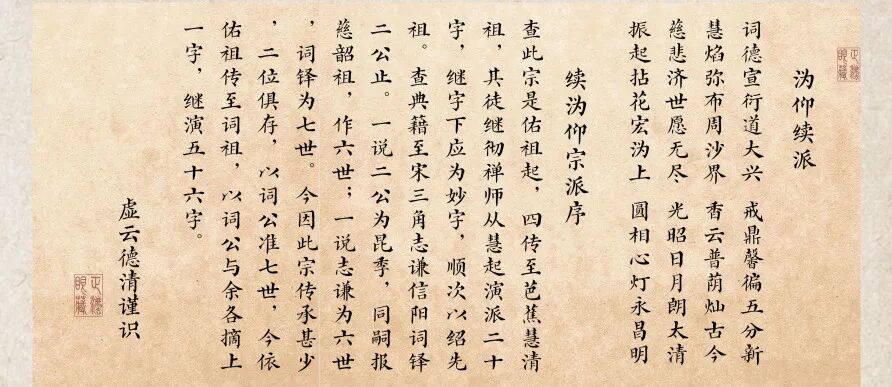 沩仰续派
词德宣衍道大兴 戒鼎馨徧五分新
慧焰弥布周沙界 香云普荫灿古今
慈悲济世愿无尽 光昭日月朗太清
振起拈花宏沩上 圓相心灯永昌明
续沩仰宗派序
查此宗是佑祖起，四传至芭蕉慧清
祖，其徒继彻禅师从慧起演派二十
字，继字下应为妙字，顺次以绍先
祖。查典籍至宋三角志谦信阳词铎
二公止。一说二公为昆季，同嗣报
慈韶祖，作六世；一说志谦为六世
，词铎为七世。今因此宗传承甚少
，二位俱存，以词公准七世，今依
佑祖传至词祖，以词公与余各摘上
一字，继演五十六字。
虚云德清谨识